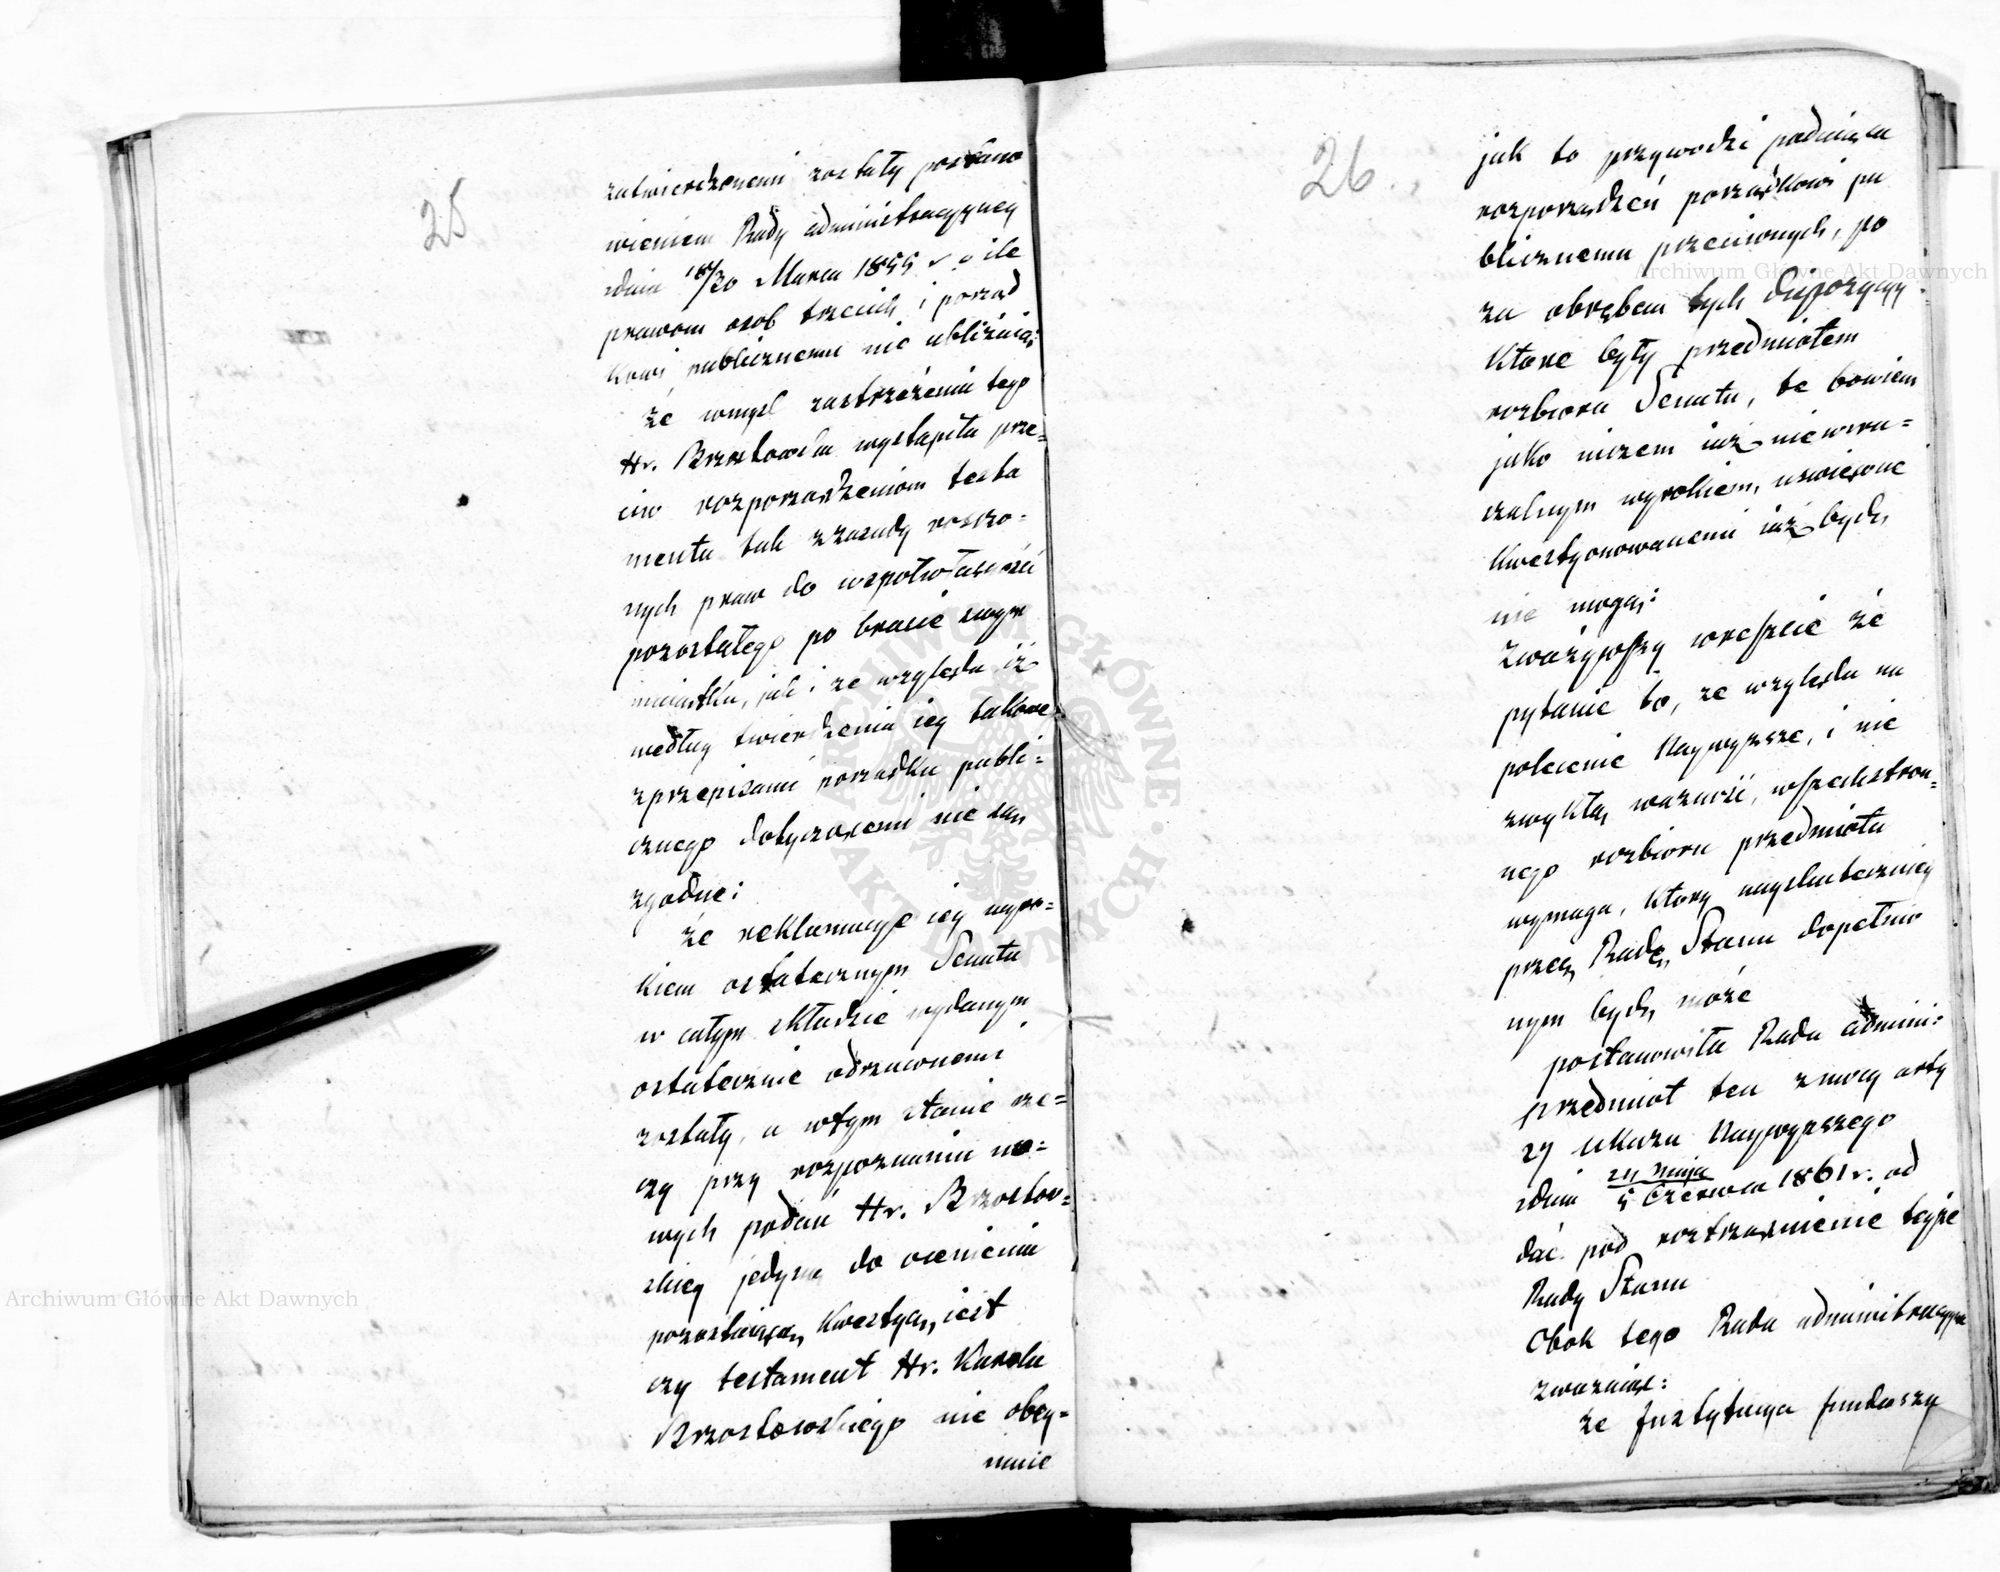 25
zatwierdzonemi zostały postano
wieniem Rady administracyjney
dnia 18/30 Marca 1855 r. o ile
prawom osob trzecich i porząd
kowi publicznemu nie ubliżaią;
że wmysl zastrzeżenia tego
Hr. Brzostowska wystąpiła prze=
ciw rozporządzeniom testa
mentu tak z zasady roszczo=
nych praw do wspołwłasności
pozostałego po bracie swym
maiątku, jak i ze względu iż
według twierdzenia iey takowe
z przepisami porządku publi=
cznego dotyczącemi nie są,
zgodne;
że reklamacye iey wyro=
kiem ostatecznym Senatu
w całym składzie wydanym
ostatecznie odrzuconemi
zostały, a wtym stanie rze=
czy przy rozpoznaniu no=
wych podań Hr. Brzostow=
skiey jedyną do ocenienia
pozostaiącą kwestyą, iest
czy testament Hr. Karola
Brzostowskiego nie obey=
muie
26.
jak to przywodzi podaiąca
rozporządzeń porządkowi pu
blicznemu przeciwnych, po
za obrębem tych dispozycyy
ktore były przedmiotem
rozbioru Senatu, te bowiem
jako niczem iuż niewzru=
szalnym wyrokiem, uswięcone
kwestyonowanemi iuż bydź
nie mogą:
Zważywszy wreszcie że
pytanie to, ze względu na
polecenie Naywyższe, i nie
zwykłą ważność, wszechstron=
nego rozbioru przedmiotu
wymaga, ktory nayskuteczniey
przez Radę Stanu dopełnio
nym bydź może
postanowiła Rada admini:
przedmiot ten z mocy arty
27 Ukazu Naywyższego
dnia 24 Maja / 5 Czerwca 1861 r. od
dać pod roztrząśnienie teyże
Rady Stanu
Obok tego Rada administracyyna
zważaiąc:
że Instytucya funduszy
Archiwum Główne Akt Dawnych
Archiwum Główne Akt Dawnych
ARCHIWUM GŁÓWNE AKT DAWNYCH